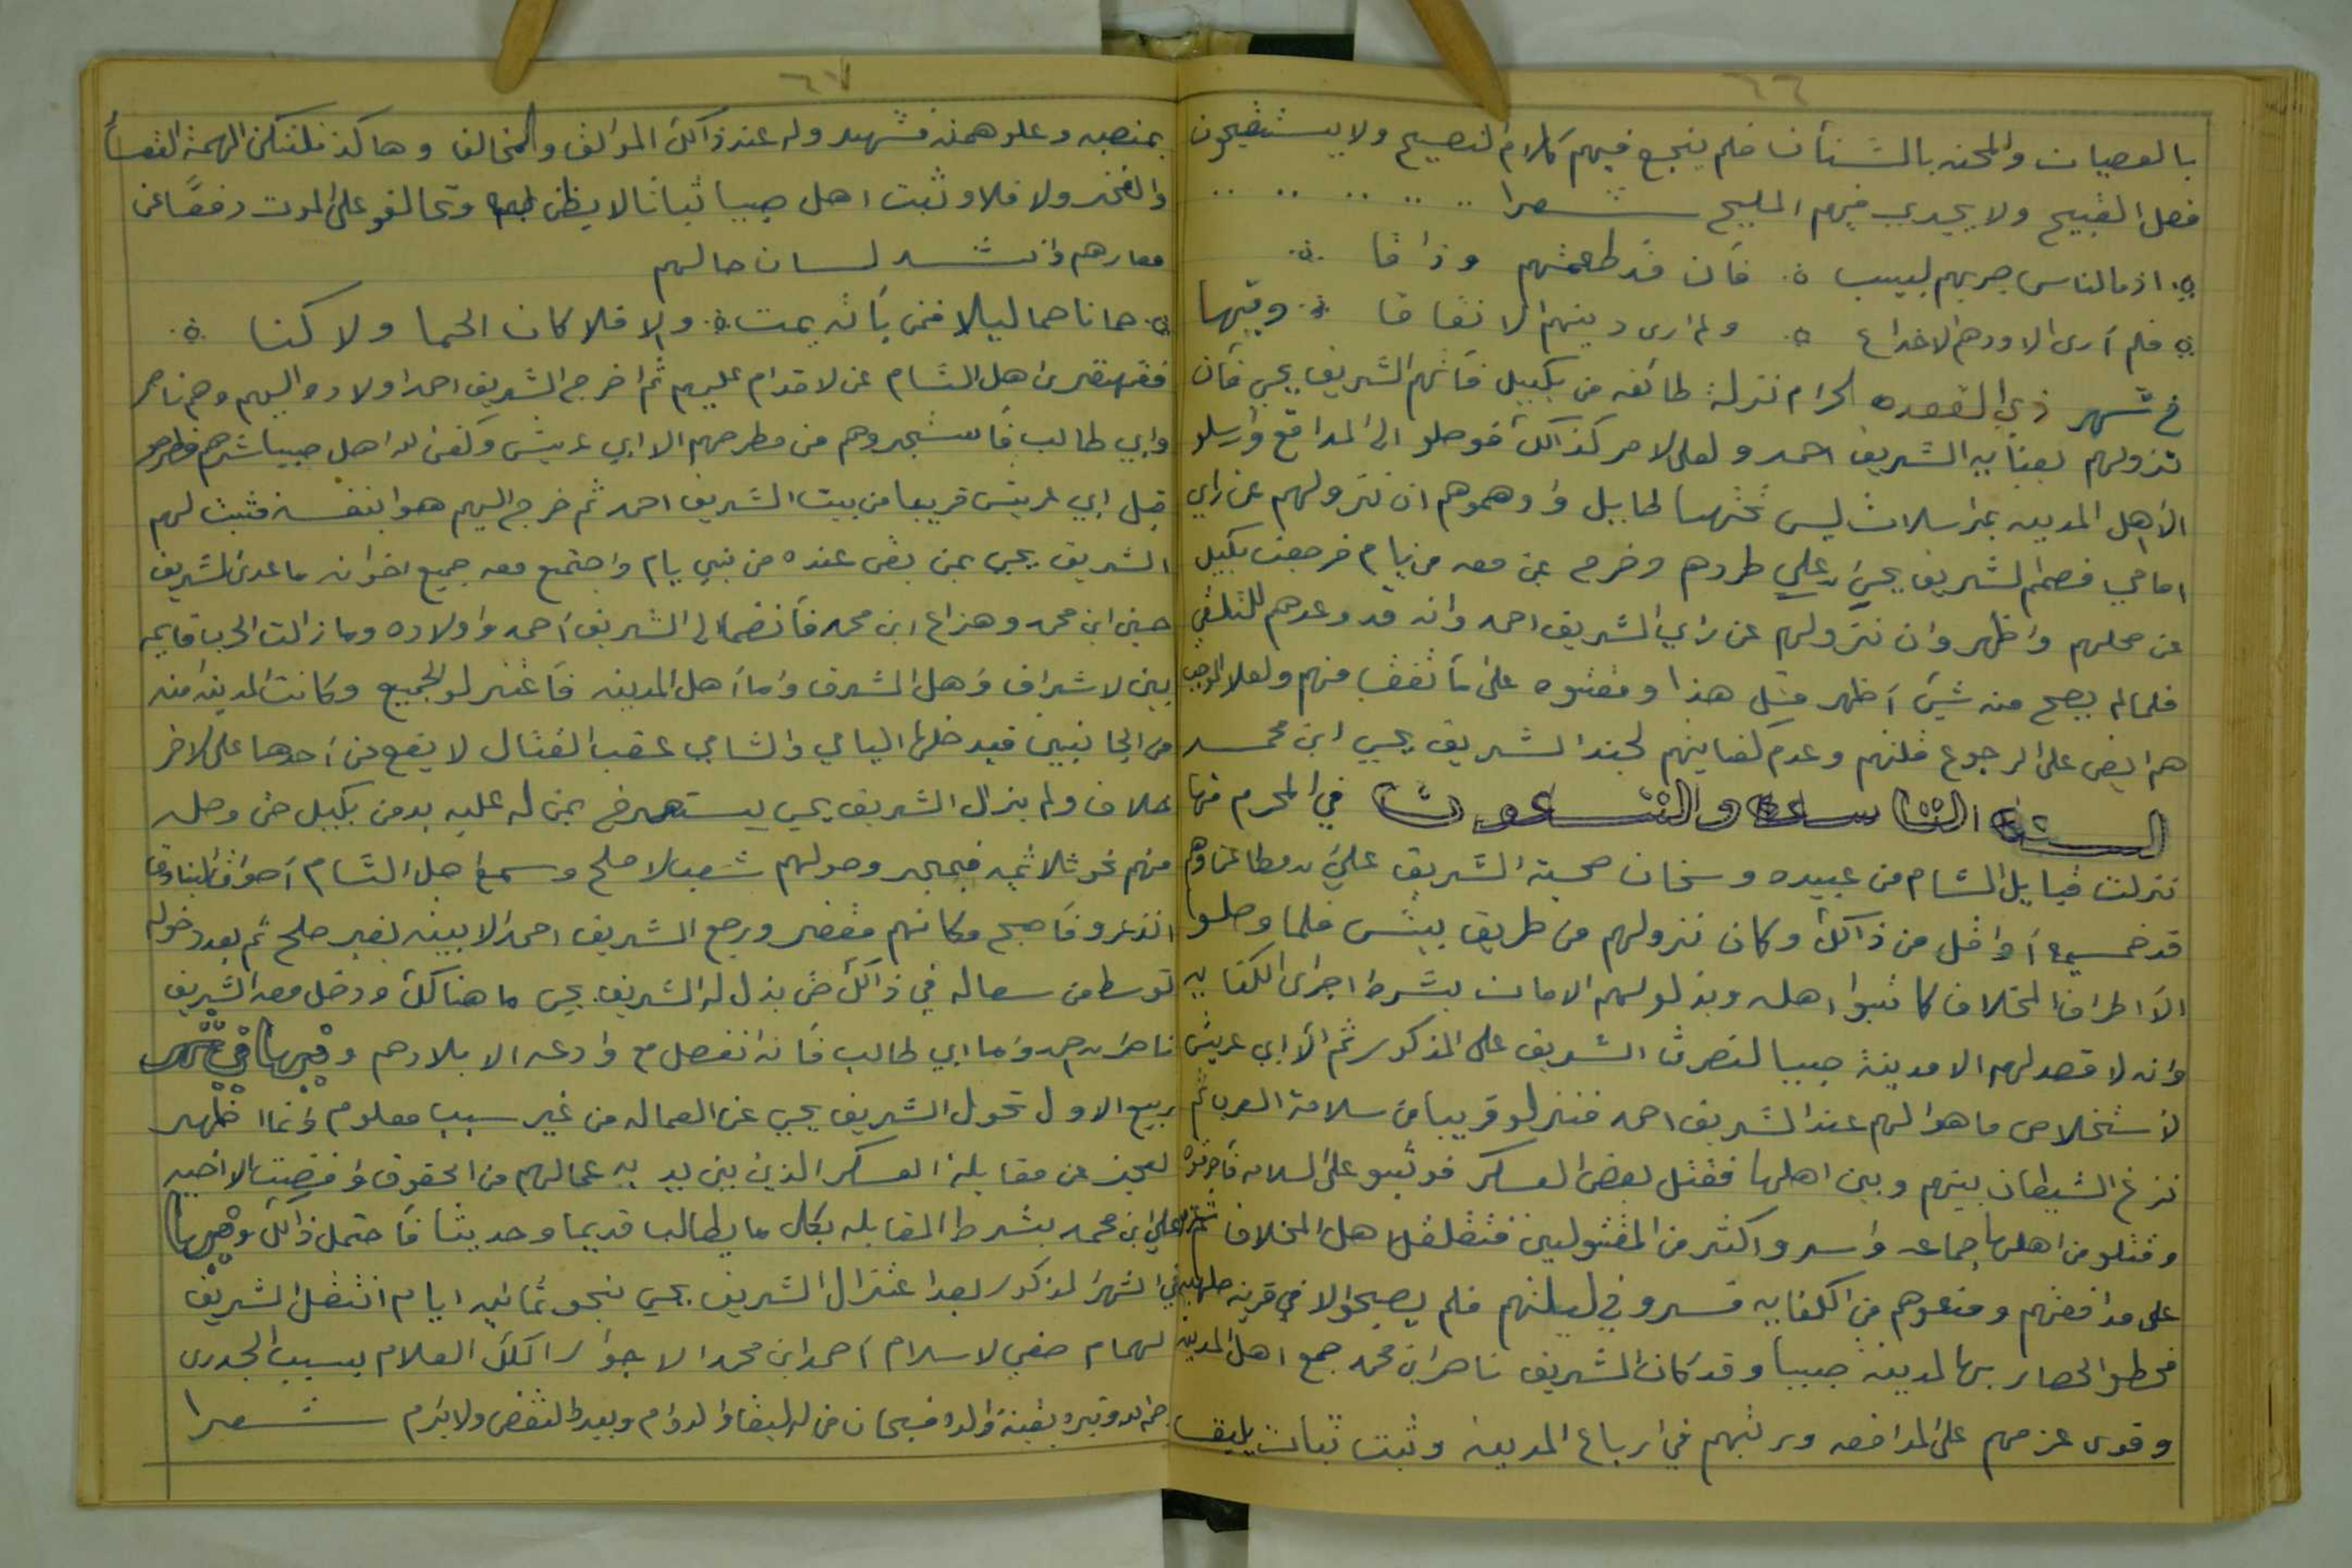 ٦٦
بالعصيان والمحنه بالشنأن فلم ينجع فيهم كلام النصيح ولا يستقبحون
فعل القبيح ولا يجدي فيهم المليح شعرا
اذما الناس جربهم لبيب فأن قد طعمتهم وذاقا
فلم أرى الا ودهم الا خداع ولم ارى دينهم الا نفاقا وفيها
في شهر ذي القعده الحرام نزلة طائفه من بكيل فأتهم الشريف يحي فأن
نزولهم بعنأيه الشريف احمد ولعل الامر كذالك فوصلو الى المدافع وأرسلو
الأهل المدينه بمراسلات ليس تحتهسا لحايل وأوهموهم ان نزولهم عن راي
امامي فصمم الشريف يحيى علي طردهم وخرج بمن معه من يام فرجعت بكيل
من محلهم واظهروان نزولهم عن راي الشريف احمد وانه قد وعدهم للتلقي
فلمالم يصح منه شيئ أظهر مثل هذا ومقتوه على مأتفف منهم ولعلا الموجب
هم ايض على الرجوع قلتهم وعدم كفايتهم لجند الشريف يحيي ابن محمد
السنة التاسعة والتسعون في المحرم منها
نزلت قبايل الشام من عبيده وسنحان صحبة الشريف علي مطاعن وهم
قد خمسميه أواقل من ذالك وكان نزولهم من طريق بيش فلما وصلوا
الأ اطراف المخلاف كاتبوا اهله وبذلو لهم الامان بشرط اجرى الكفايه
وانه لا قصد لهم الا مدينة صبيا لنصرت الشريف على المذكور ثم الأ ابي عريش
لأستخلاص ما هوا لهم عند الشريف احمد فنزلو قريبا من سلامة العرب ثم
نزغ الشيطان بينهم وبين اهلها فقتل بعض العسكر فوثبو على السلامه فأحرقوه
وقتلو من اهلها جماعه واسرو اكثر من المقتولين فتقلقل اهل المخلاف
على مدافعتهم ومنعوهم من الكفايه فسرو في ليلتهم فلم يصبحوا الا في قرية صلهبه
فحطوا الحصار بها لمدينة صبيا وقد كان الشريف ناصر ابن محمد جمع اهل المدينه
وقوى عزمهم على المدافعه ورتبهم في ارباع المدينه وثبت ثبات يليق
٦٧
بمنصبه وعلو همته فشهد وله عند ذالك المؤالف والمخالف وهاكذ فلتكن الهمة القعسأ
والفخر ولا فلا وثبت اهل صبيا ثباتا لا يظن بهم وتحالفو على الموت دفعًا عن
معارهم وانشد لسان حالهم
حمانا حما ليلا فمن يأته يمت ولا فلا كان الحما ولا كنا
فقهقرى اهل الشام عن الاقدام عليهم ثم اخرج الشريف احمد اولادو اليهم وهم ناصر
وابي طالب فأستجروهم من مطرحهم الا ابي عريش وكفى الله اهل صبيا شرهم فطرحو
قبل ابي عريش قريبا من بيت الشريف احمد ثم خرج اليهم هوا بنفسه فثبت لهم
الشريف يحيى بمن بقى عنده من بني يام واجتمع معه جميع اخوانه ما عدى الشريف
حسين ابن محمد وهزاع ابن محمد فأنضما الى الشريف أحمد واولاده وما زالت الحرب قايمه
بين لاشراف وهل الشرق وأما أهل المدينه فأعتزلو الجميع وكانت المدينه امنه
من الجانبين فيدخلها اليامي والشامي عقب القتال لا يقع من أحدهما على الاخر
خلاف ولم يزال الشريف يحيى يستصرخ بمن له عليه يد من بكيل حتى وصله
منهم نحو ثلاثميه فبمجرد وصولهم شعب الاصلح وسمع اهل الشام أصواق البنادق
انذعرو فأصبح مكانهم مقفر ورجع الشريف احمد الا بيته بغير صلح ثم بعد دخوله
توسط من سعا له في ذالك حتى بذل له الشريف يحي ما هنالك ودخل معه الشريف
ناصر احمد وأما ابي طالب فأنه انفصل مع وادعه الا بلادهم وفيها في شهر
ربيع الاول تحول الشريف يحيي عن العماله من غير سبب معلوم وانما اظهر
لعجز عن مقابلة العسكر الذين بين يديه بمالهم من الحقوق وافضت الا اخيه
علي ابن محمد بشرط المقابله بكل ما يطالب قديما وحديثا فأحتمل ذالك وفيها
في الشهر المذكور بعد اعتزال الشريف يحيي بنحو ثمانيه ايام انتقل الشريف
لهمام صفي لاسلام أحمد ابن محمد الا جوار الملك العلام بسبب الجدرى
وقبره بقبة والده فسبحان من له البقا والدوام وبيده النقض ولابرم شعرا